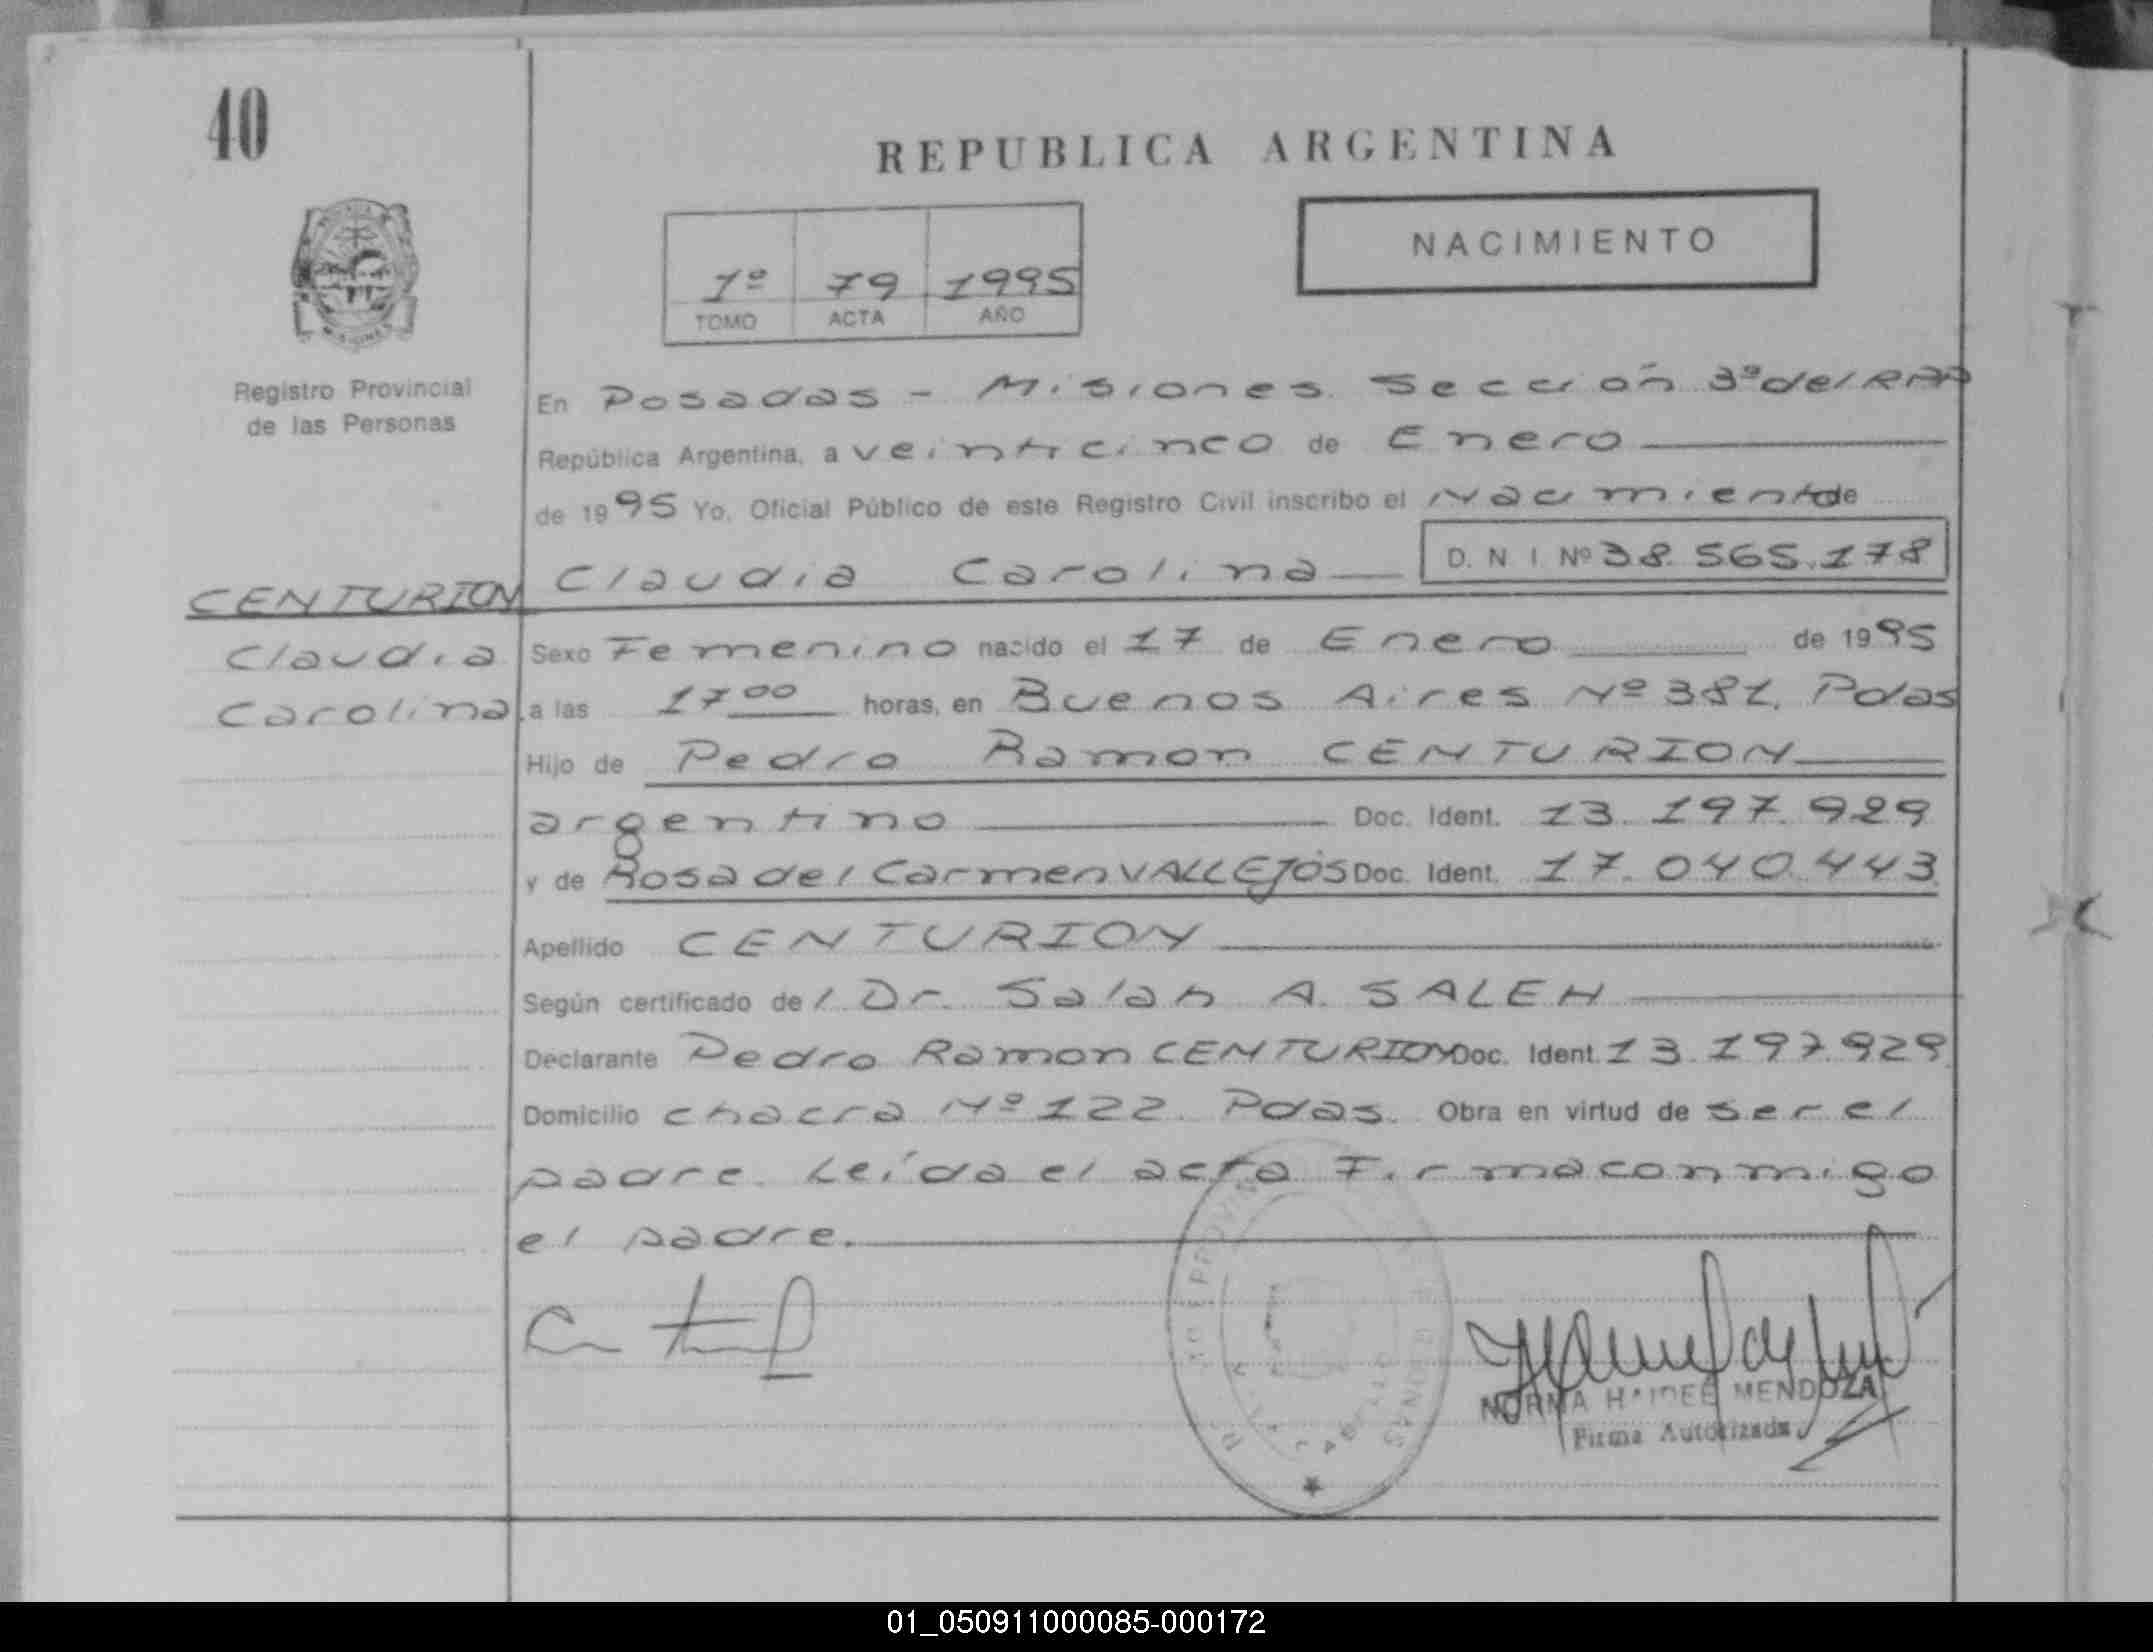 40
REPUBLICA ARGENTINA
NACIMIENTO
1º 79 1995
TOMO ACTA AÑO
Registro Provincial
de las Personas
En Posadas - Misiones Sección 3ª del
República Argentina, a veinticinco de Enero
de 1995 Yo, Oficial Público de este Registro Civil inscribo el Nacimiento de
Claudia Carolina D. N. I. Nº 38.565.178
CENTURION
Claudia
Carolina
Sexo Femenino nacido el 17 de Enero de 1995
a las 17 00 horas, en Buenos Aires Nº 381. Pdas
Hijo de Pedro Ramon CENTURION
argentino Doc. Ident. 13.197.929
y de Rosa del Carmen VALLEJOS Doc. Ident. 17.040.443
Apellido CENTURION
Según certificado de l Dr. Salah A. SALEH
Declarante Pedro Ramon CENTURION Doc. Ident. 13.197.929
Domicilio chacra Nº 122. Pdas. Obra en virtud de ser el
padre. Leída el acta Firma conmigo
el padre.
NORMA HAIDEE MENDOZA
Firma Autorizada
01_050911000085-000172